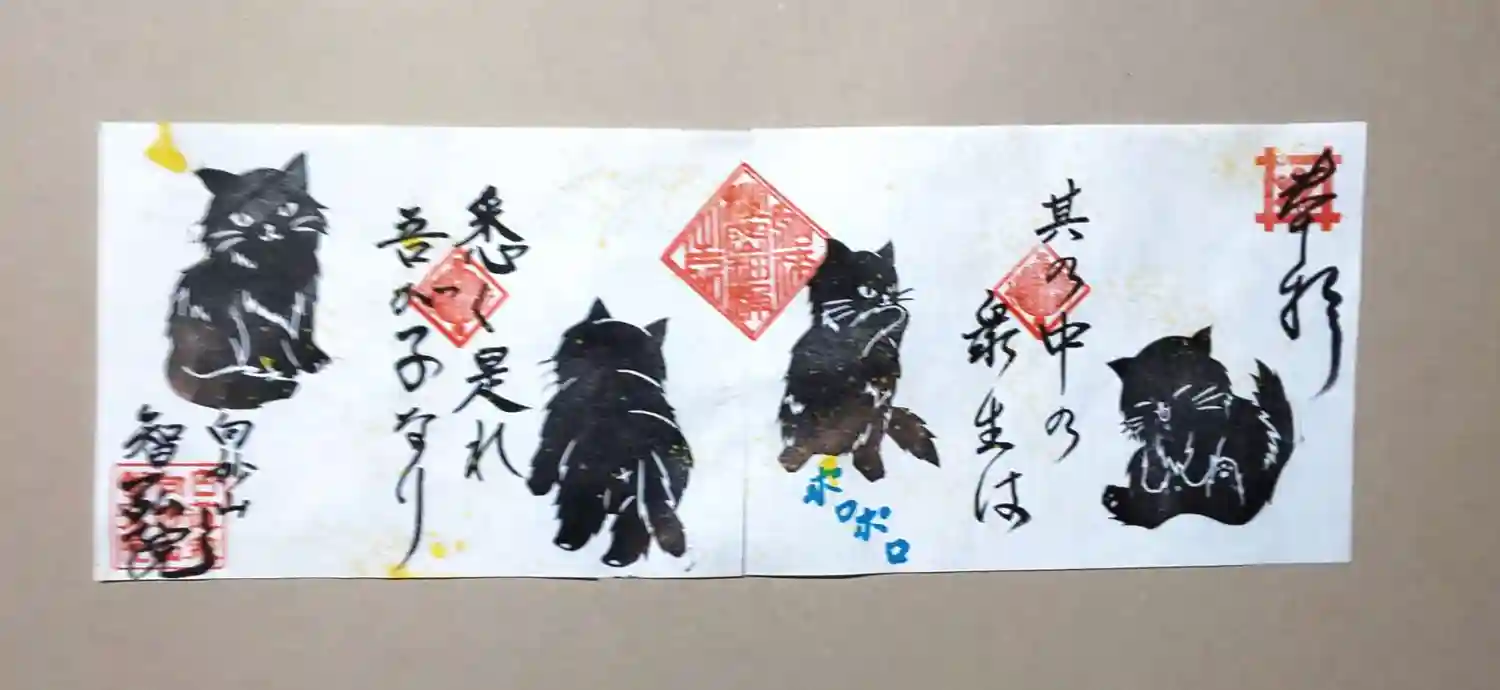 奉拝
其の中の
衆生は
ポロポロ
悉く是れ
吾が子なり
向山
智弘院